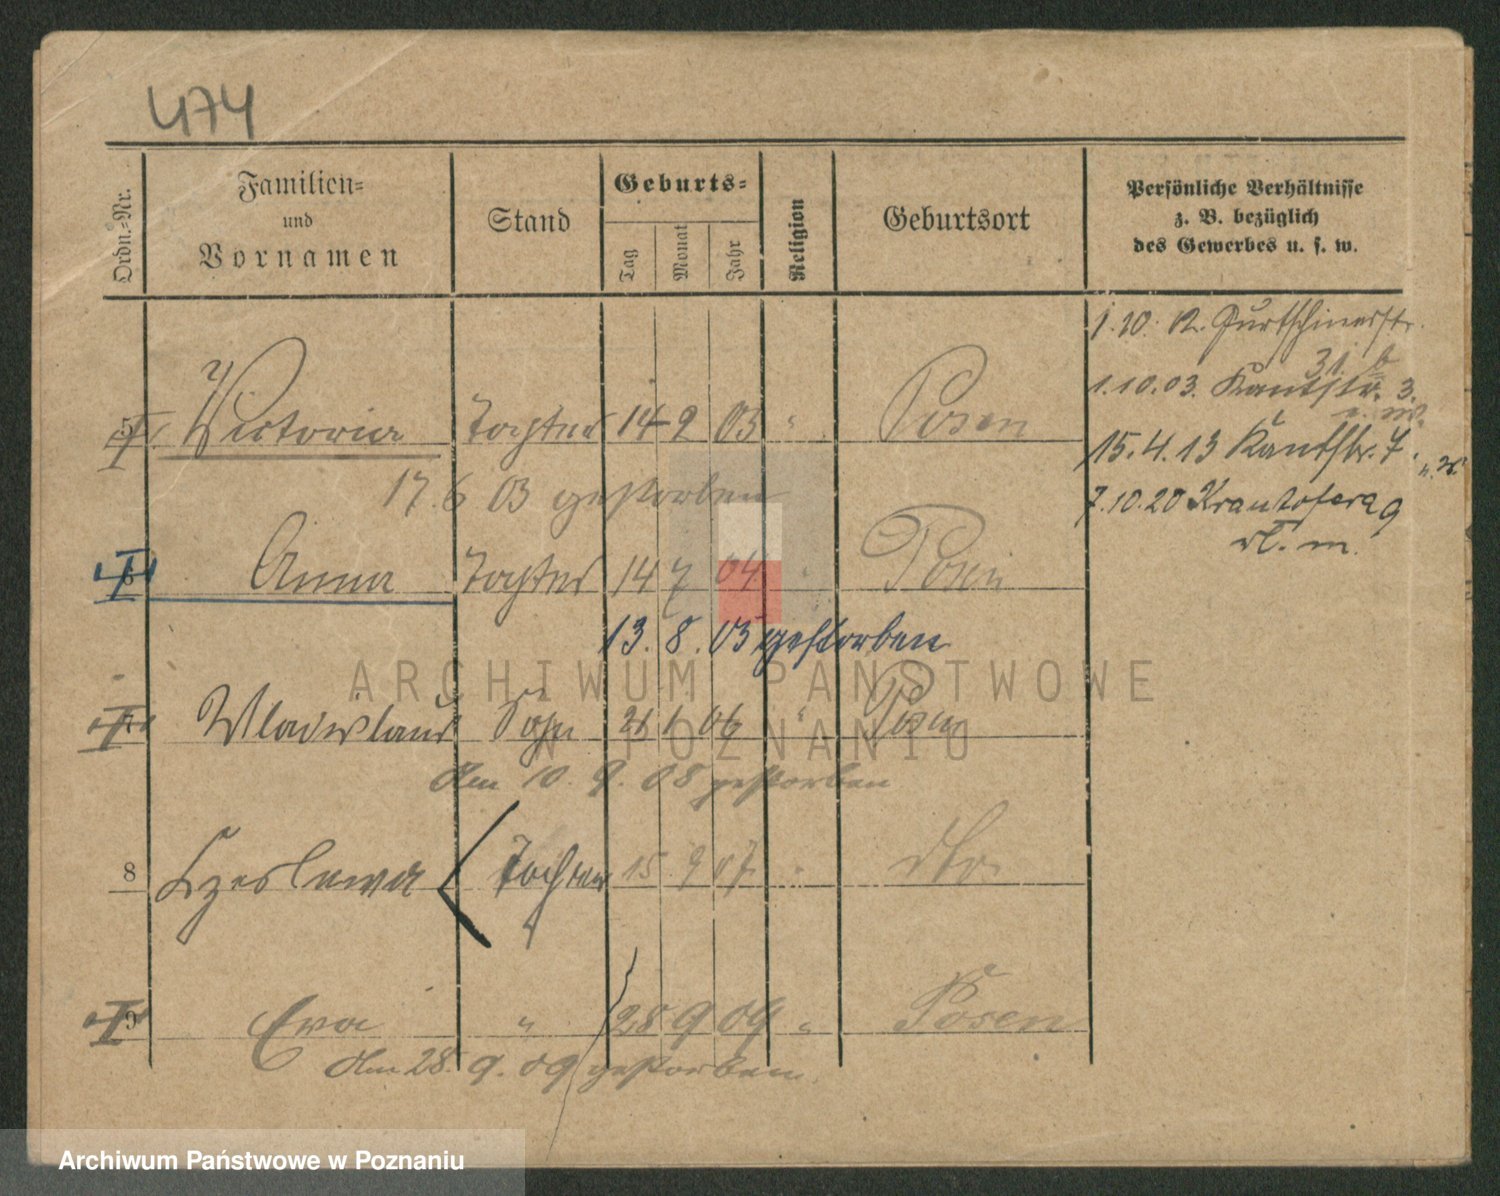 474
Ordn.-Nr.
Familien-
und
Vornamen
Stand
Geburts-
Tag
Monat
Jahr
Religion
Geburtsort
Persönliche Verhältnisse
z. B. bezüglich
des Gewerbes u. s. w.
1.10. Gurtschinerstr.
31
1.10.03. Kantstr. 3.
5 Victoria Tochter 14 2 03 " Posen
15.4.13 Kantstr. 7.
17. 6 03 gestorben
7.10.20
6 Anna Tochter 14 7 04 " Posen
13. 8. 03 gestorben
Wladislaus Sohn 21 1 06 " Posen
Am 10. 9. 08 gestorben
8 Czeslawa Tochter 15 9 07 " dto
9 Eva " 28 9 09 " Posen
Am 28. 9. 09 gestorben.
ARCHIWUM PAŃSTWOWE
W POZNANIU
Archiwum Państwowe w Poznaniu